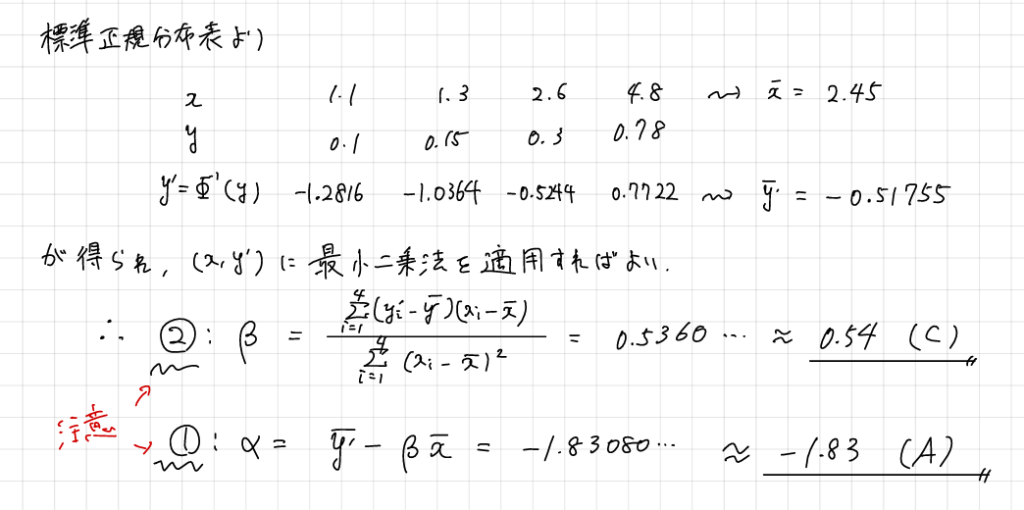 標準正規分布表より
x 1.1 1.3 2.6 4.8 ⇝ x̄ = 2.45
y 0.1 0.15 0.3 0.78
y' = Φ⁻¹(y) -1.2816 -1.0364 -0.5244 0.7722 ⇝ ȳ' = -0.51755
が得られ, (x, y') に 最小二乗法を適用すればよい.
∴ ②: β = Σ_{i=1}^{4} (y'_i - ȳ')(x_i - x̄) / Σ_{i=1}^{4} (x_i - x̄)² = 0.5360… ≈ 0.54 (C)
注意
①: α = ȳ' - βx̄ = -1.83080… ≈ -1.83 (A)